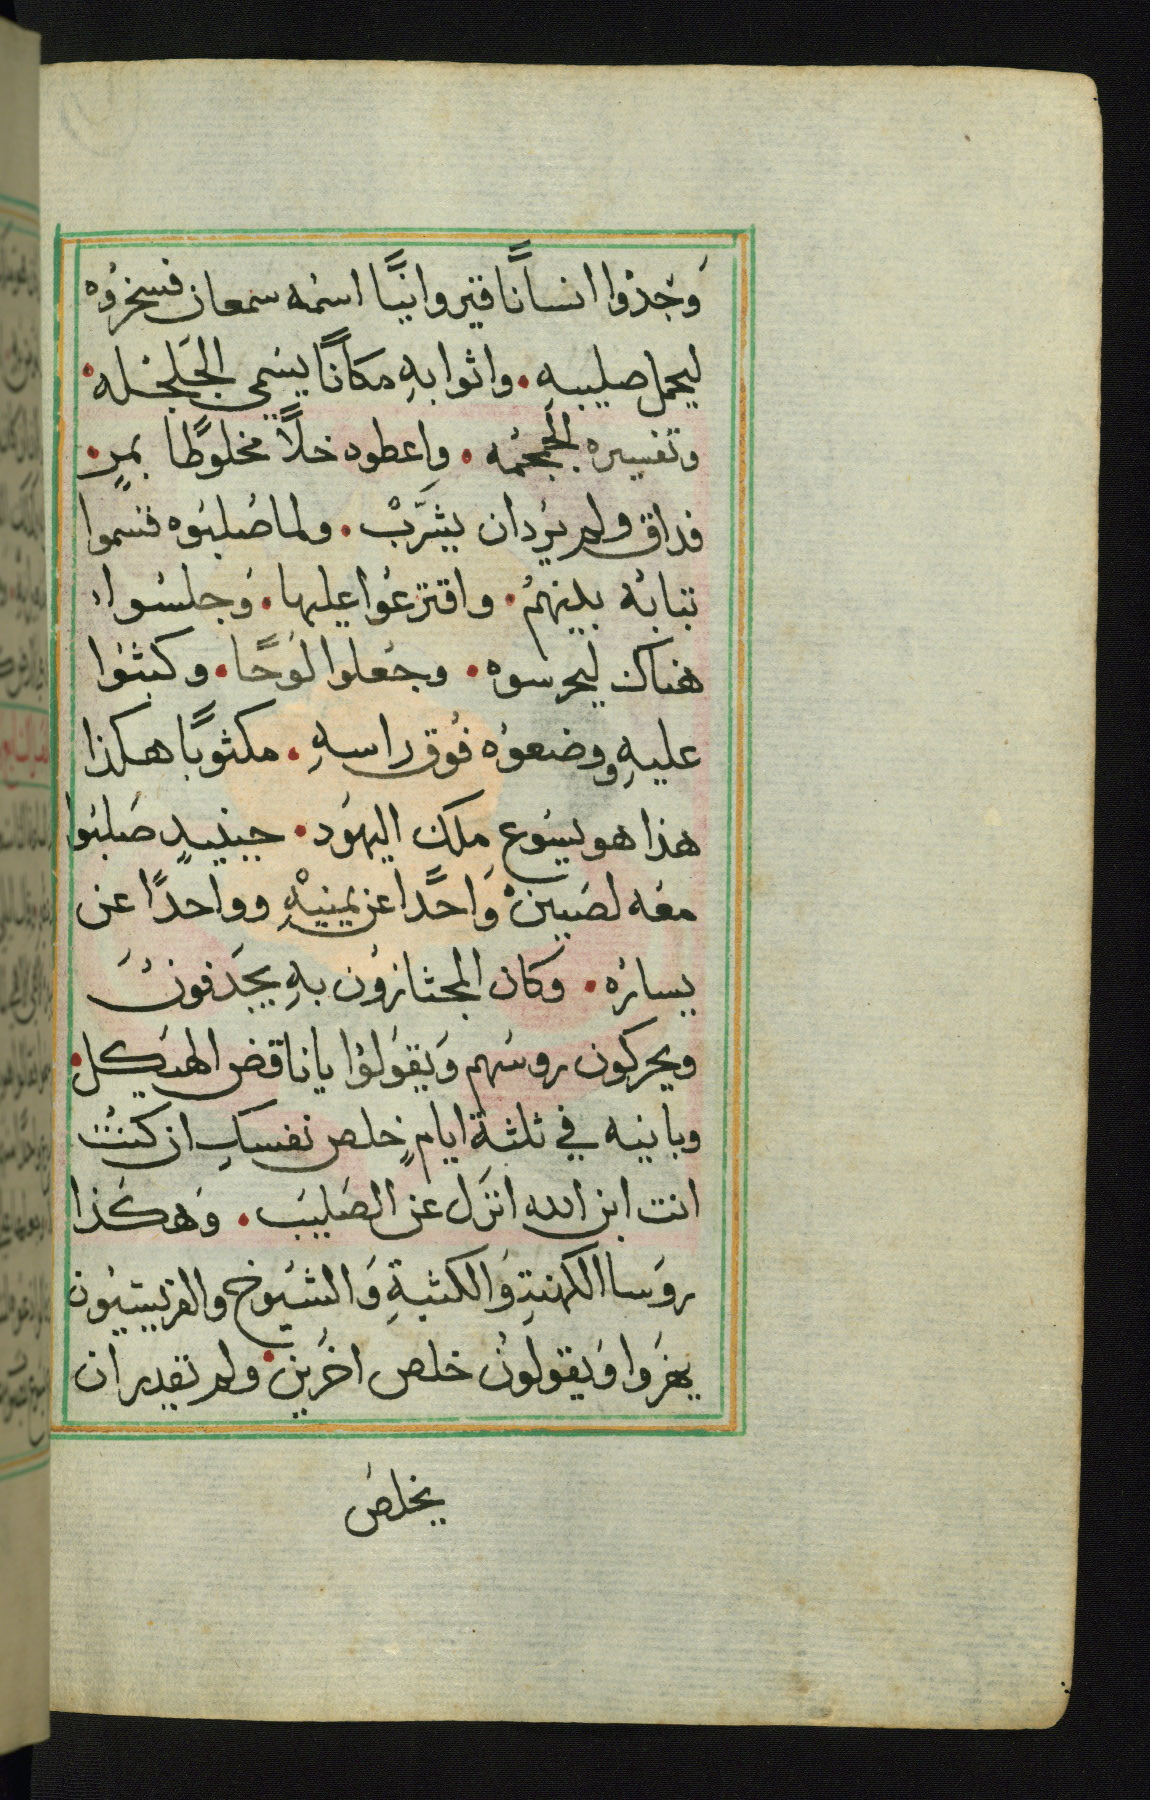 وَجَدُوا انسانًا قيروانيًّا اسمُه سمعان فسخروُه
ليحمل صليبهِ • واتوا بهِ مكانًا يسَمي الجَلجَله •
وتفسيره الجمجمُه • وِاعطوه خلاًّ مخلوطًا بمرٍ •
فداق ولم يُرِد ان يشَرَبْ • ولما صُلبَوه قسموا
تيابَه بينهمُ • واقترَعُوا عليها • وَجلسُوا
هَناك ليحرسوه • وجَعلوا لوَحًا • وكبتوا
عليهِ ووضعوُه فوُق راسهِ • مكتوبًا هكذا
هذا هو يسَوع مِلَك اليهوَد • حينيدٍ صَلبَوا
معَه لصَيين وَاحدًا عن يمينْهِ وواحدًا عن
يسارُه • وَكان المجتازوُن بهِ يجَدفونُ
ويحركون روسَهم وَيقوَلوُا يا ناقض الهيَكل •
وبانيه في ثلثة ايامٍ خلص نفسَكِ ان كنتُ
انت ابن الله انزَل عن الصَليبَ • وَهكَذا
روَسا الكهنةِ وَالكتبةِ وَالشيَوخ والفريسيَون
يهزَوا وَيقولونُ خلص اخرَين • ولم تقدِر ان
يخلصَ